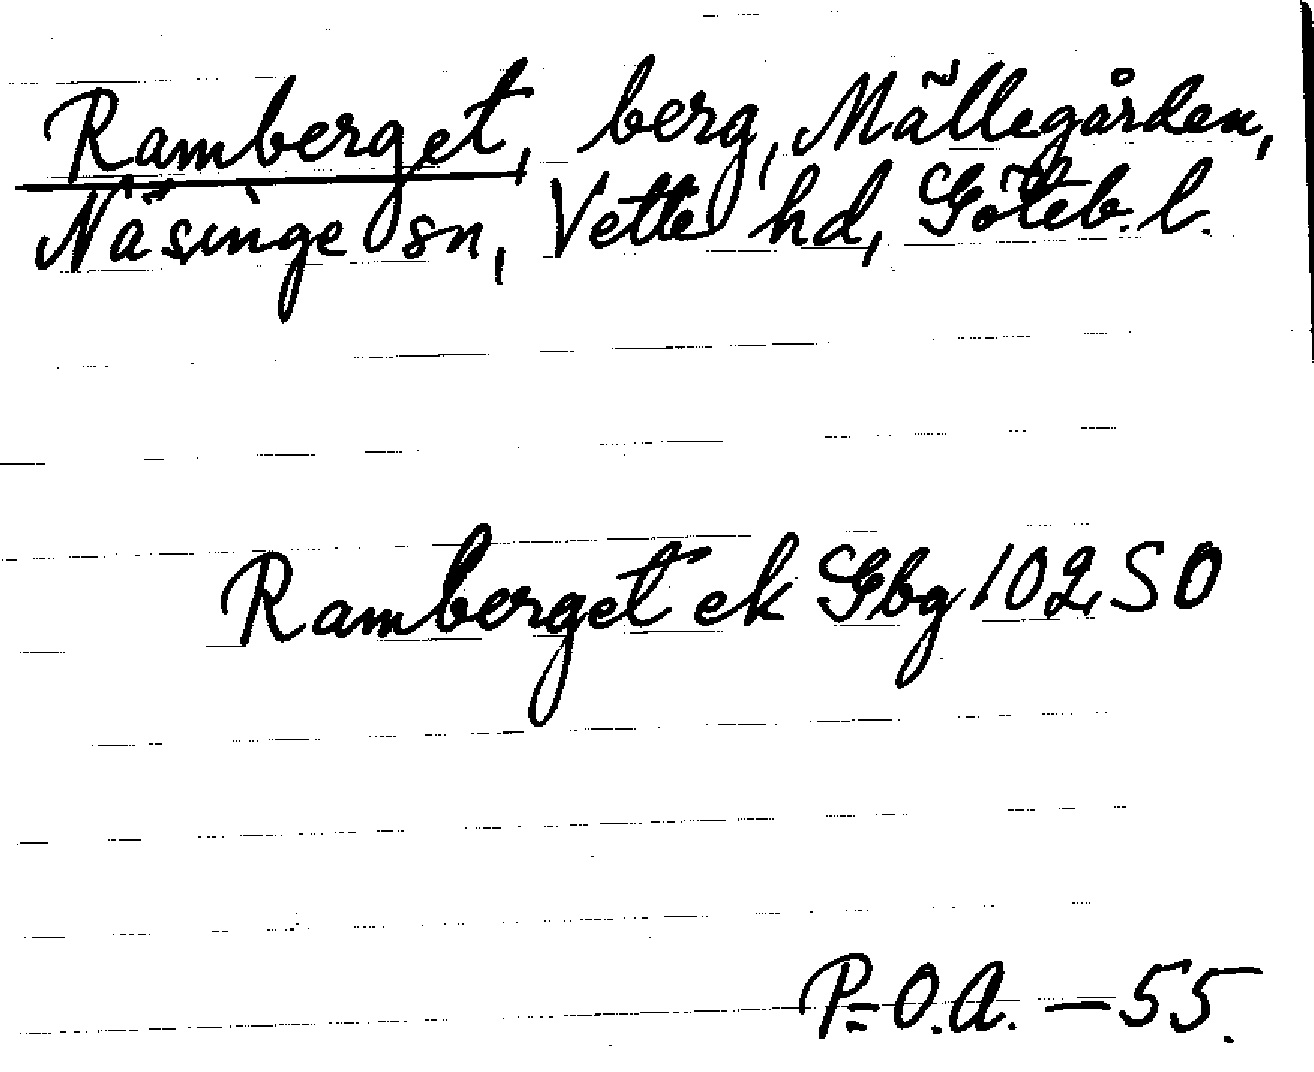 Ramberget, berg, Mällegården,
Näsinge sn, Vette hd, Göteb. l.
Ramberget ek Gbg 102 SO
P-O.A. -55.